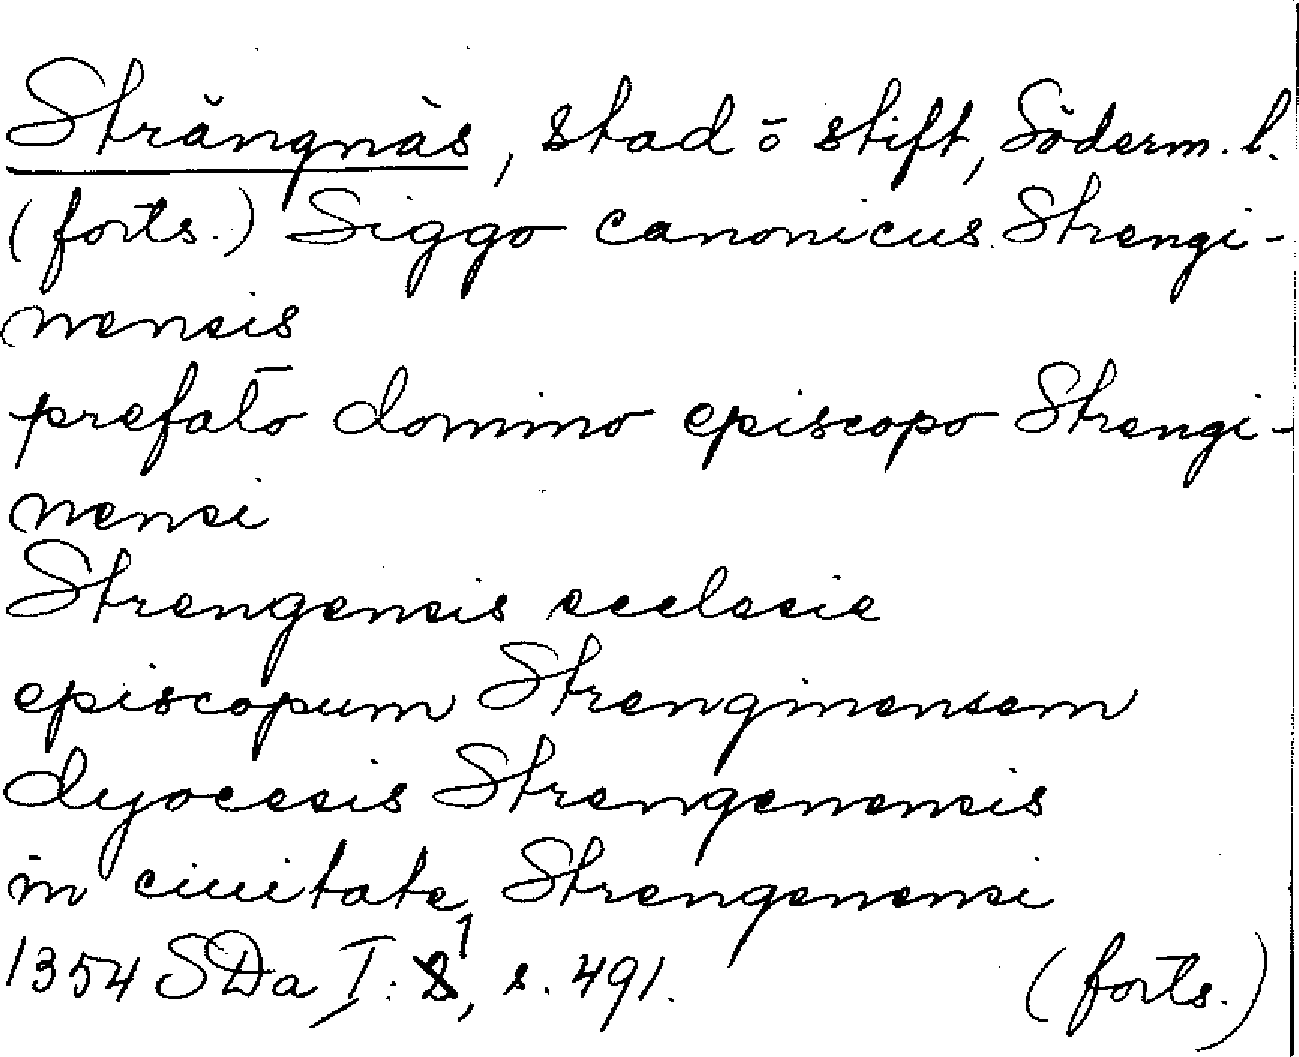 Strängnäs, stad o stift, Söderm. l.
(forts.) Siggo canonicus Strengi-
nensis
prefato domino episcopo Strengi-
nensi
Strengensis ecclesie
episcopum Stренginensem
dyocesis Strengenensis
in ciuitate Strengenensi
1354 SDa I: 1, s. 491. (forts.)